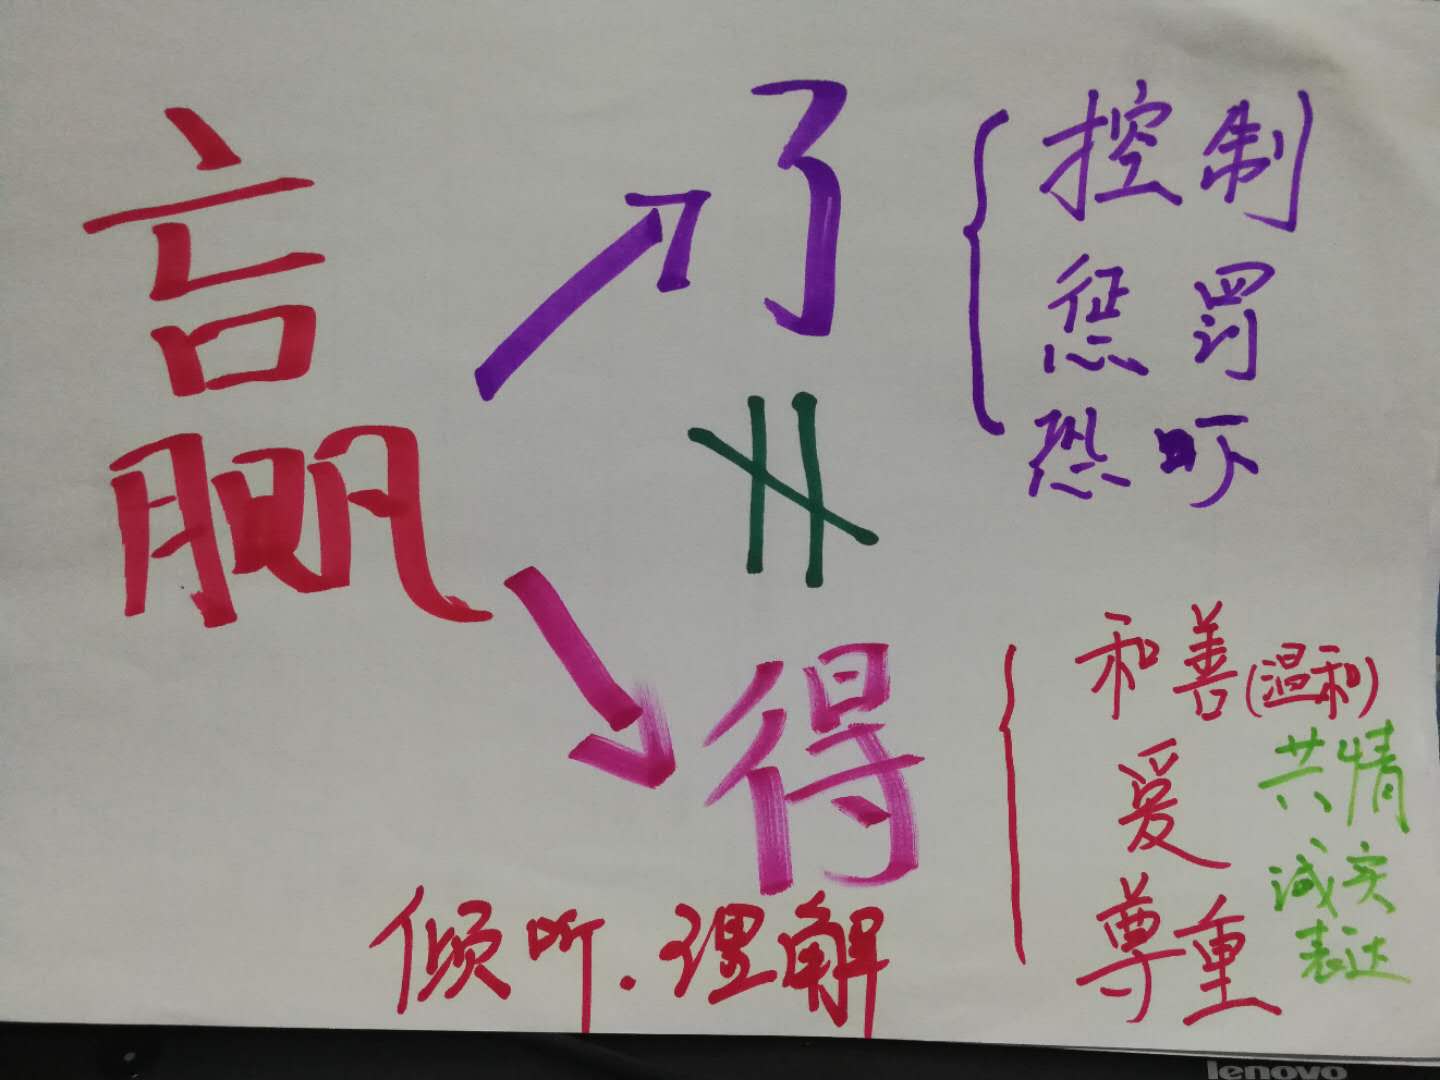 赢
了
控制
惩罚
恐吓
≠
得
和善(温和)
爱
尊重
共情
诚实
表达
倾听.理解
lenovo